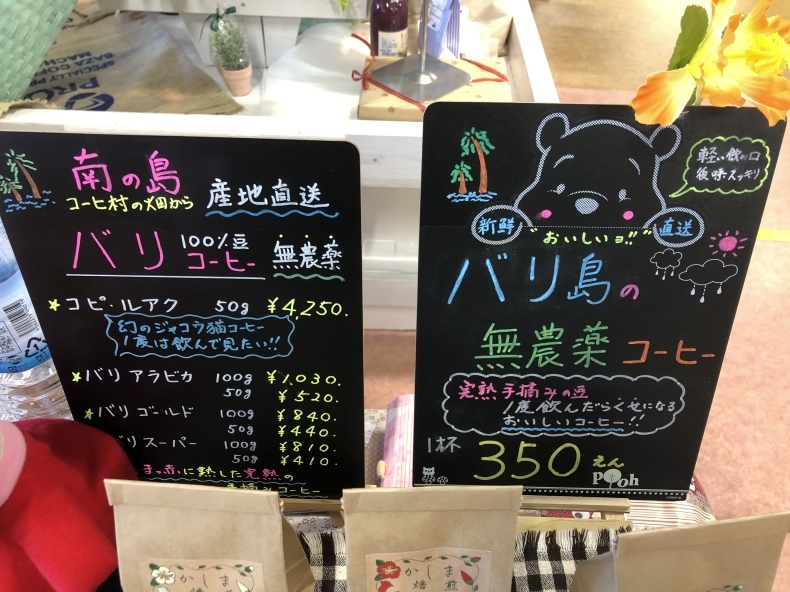 南の島
コーヒ村の畑から
産地直送
バリ 100%豆
コーヒー
無農薬
コピ・ルアク 50g ¥4,250.
幻のジャコウ猫コーヒー
1度は飲んで見たい!!
バリ アラビカ 100g ¥1.030.
50g ¥ 520.
バリ ゴールド 100g ¥ 840.
50g ¥ 440.
バリ スーパー 100g ¥ 810.
50g ¥ 410.
まっ赤に熟した完熟の
手摘みコーヒー
軽い飲み口
後味スッキリ
新鮮
"おいしいヨ!!"
直送
バリ島の
無農薬 コーヒー
完熟手摘みの豆
1度飲んだらくせになる
おいしいコーヒー!!
1杯 350えん
Pooh
かしま
焙煎
かしま
焙煎